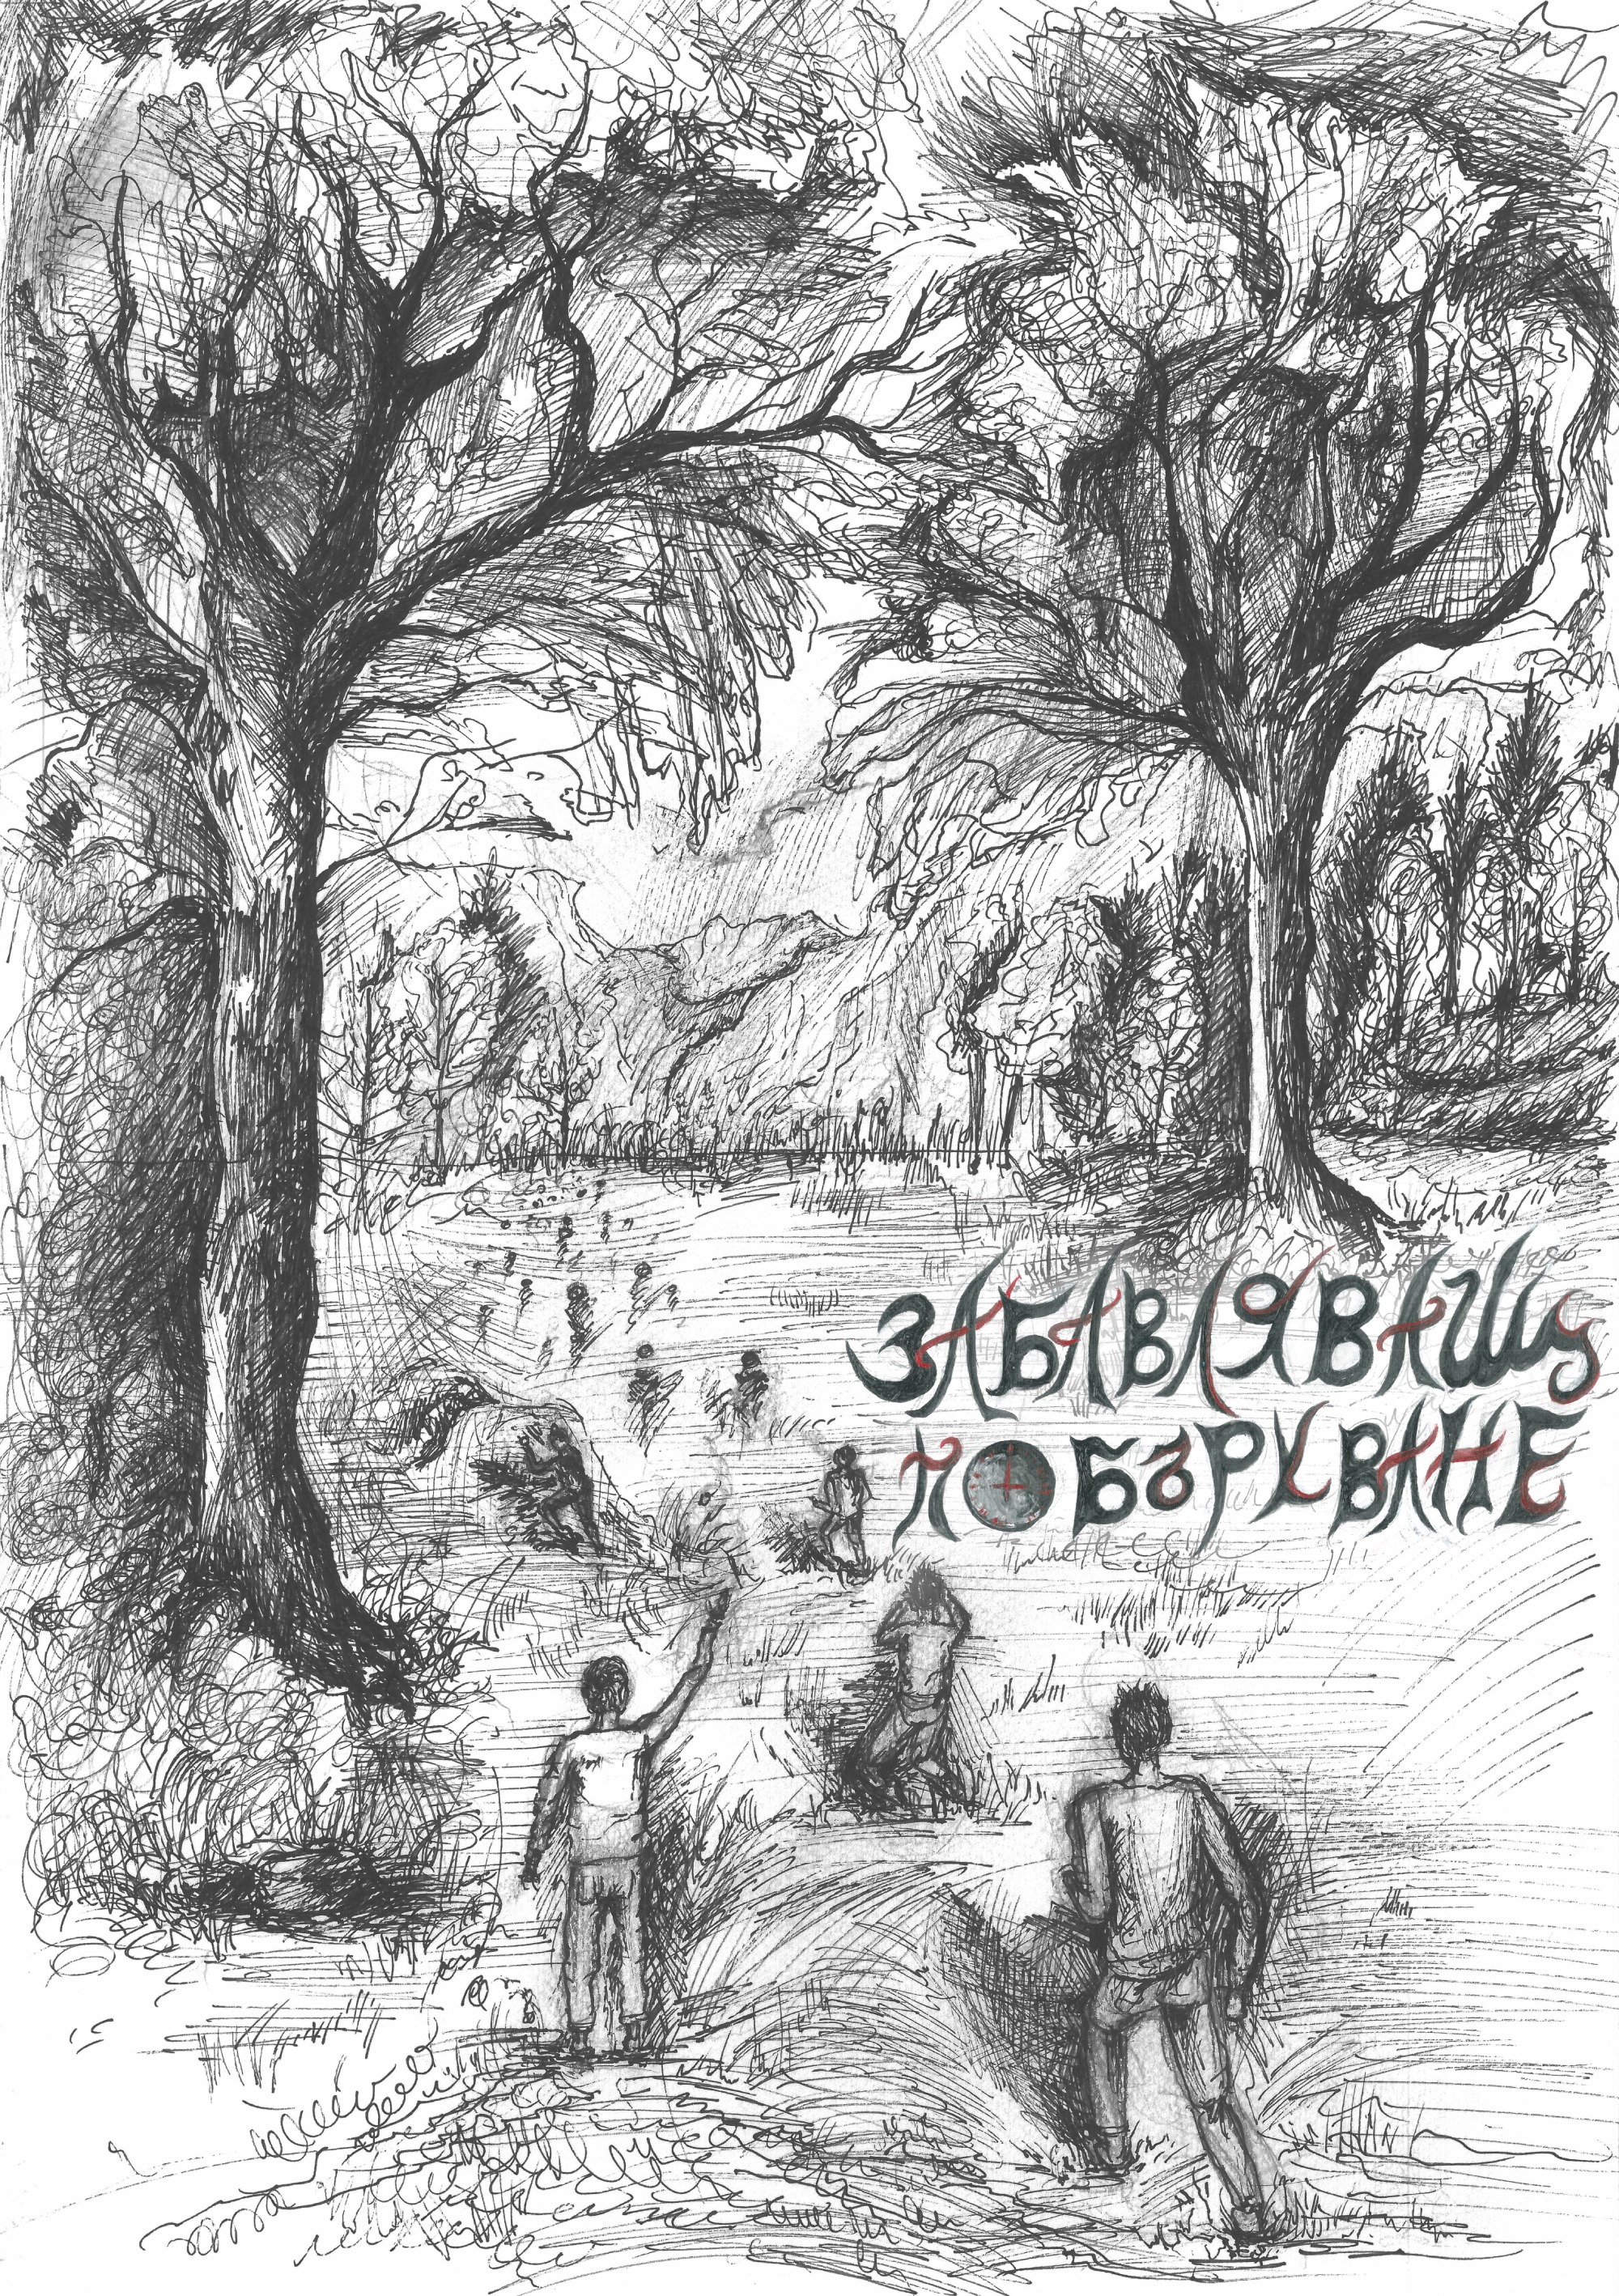 ЗАБАВЛЯВАЩ
ПОБЪРКВАНЕ